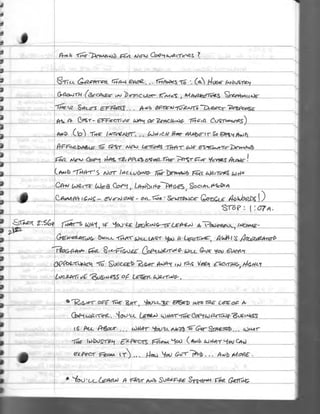 And The Demand For New Copywriters?
Still Greater Than Ever... Thanks To: (a) Huge Industry
Growth (Because In Difficult Times, Marketers
Their Sales Efforts... And Often Turn To Direct Response
As A Cost-Effective Way Of Reaching Their Customers)
And (b) The Internet... Which Has Made It So Easy And
Affordable To Test New Letters That We Estimate Demand
For New Copy Has Tripled Over The Past Few Years Alone!
(And That's Not Including The Demand For Writers Who
Can Write Web Copy, Landing Pages, Social Media
Campaigns - Even One- Or Two-Sentence Google Adwords!)
STOP: 1:07 A.
That's Why, If You're Looking To Learn A Powerful, Income-
Generating Skill That Will Last You A Lifetime, AWAI's Accelerated
Program For Six-Figure Copywriting Will Give You Every
Opportunity To Succeed Right Away In This Very Exciting, Highly
Lucrative Business Of Letter Writing.
• Right Off The Bat, You'll Be Eased Into The Life Of A
Copywriter. You'll Learn What The Copywriting Business
Is All About... What You'll Need To Get Started... What
The Industry Expects From You (And What You Can
Expect From It)... How You Get Paid... And More.
• You'll Learn A Fast And Surefire System For Getting